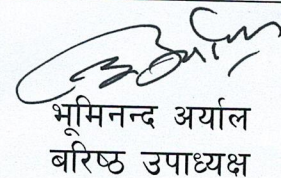 भूमिनन्द अर्याल
बरिष्ठ उपाध्यक्ष